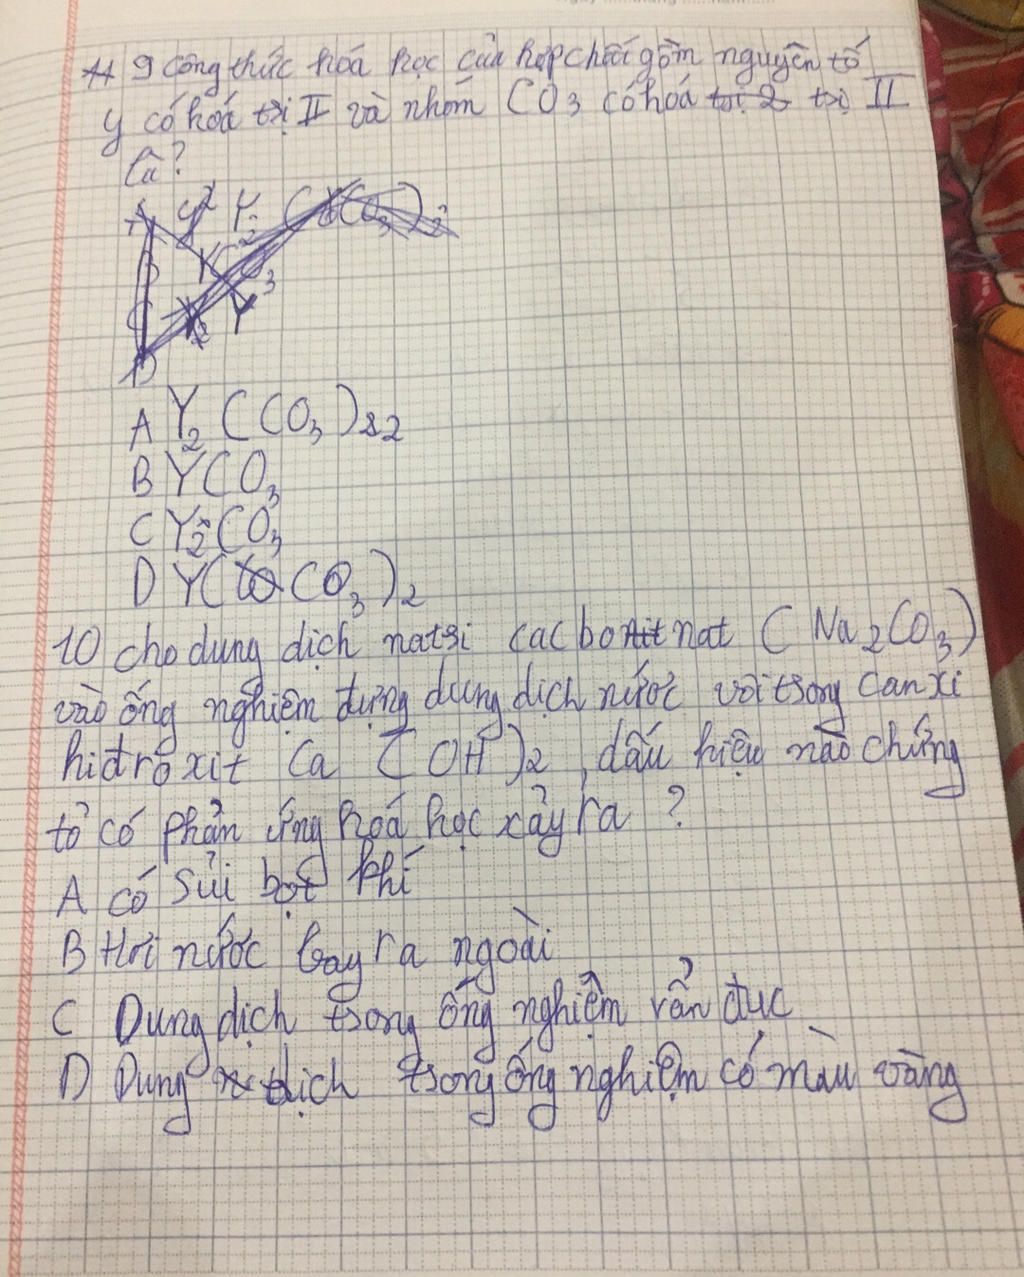 9 công thức hoá học của hợp chất gồm nguyên tố
y có hoá trị II và nhóm CO3 có hoá trị 2 trị II
là?
A Y2 (CO3)2
B YCO3
C Y2CO3
D Y(CO3)2
10 cho dung dịch natri cacbonat (Na2CO3)
vào ống nghiệm đựng dung dịch nước vôi trong canxi
hiđrô xit Ca (OH)2, dấu hiệu nào chứng
tỏ có phản ứng hoá học xảy ra ?
A có sủi bọt khí
B Hơi nước bay ra ngoài
C Dung dịch trong ống nghiệm vẩn đục
D Dung dịch trong ống nghiệm có màu vàng